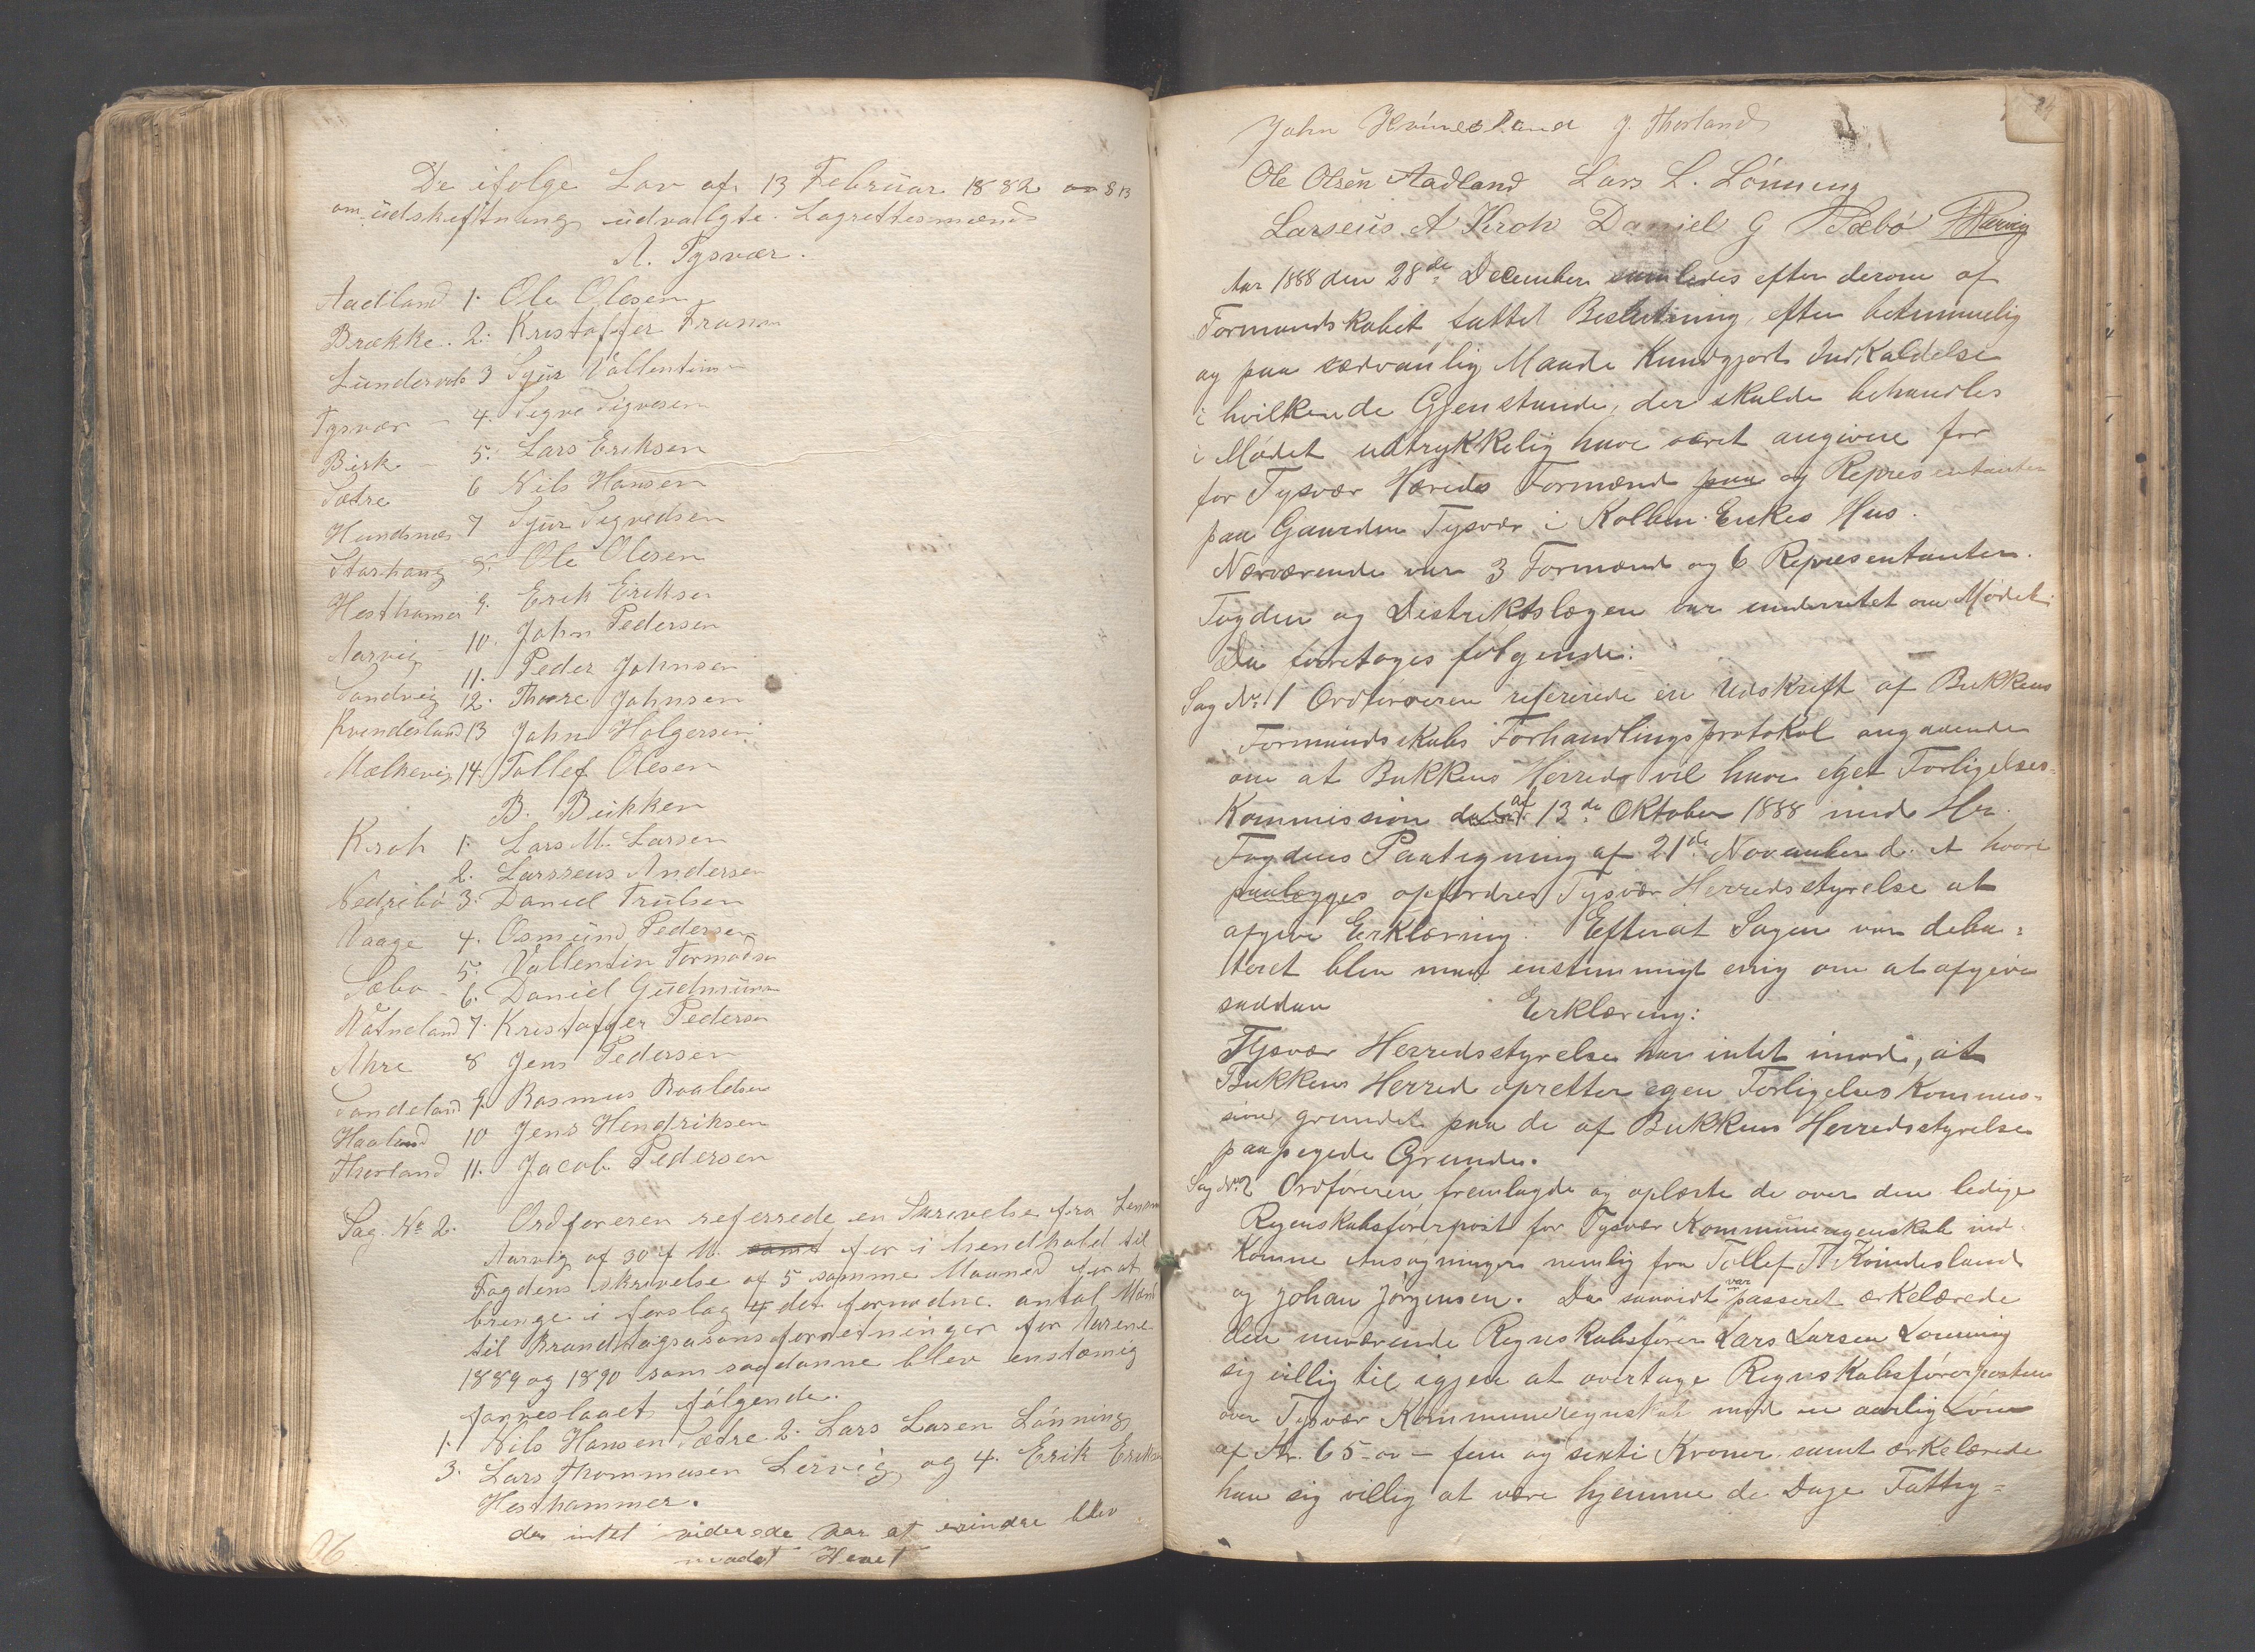 De ifølge Lov af 13 Februar 1882 § 13
om udskiftning udvalgte Lagrettesmænd
A. Tysvær.
Aadland 1. Ole Olesen
Brække. 2. Kristoffer
3 Sjur Vallentinsen
Tysvær - 4. Sigvesen
Birk - 5. Lars Eriksen
Sætre 6 Nils Hansen
Hundsnes 7 Sjur Sigvedsen
8. Ole Olesen
Hesthamer 9. Erik Eriksen
Aarvig - 10. John Pedersen
11. Peder Johnsen
Sandvig 12. Thore Johnsen
Kvendesland 13 John Holgersen
Mælkevig 14. Tollef Olesen
B. Bukken
Kroh 1. Lars M. Larsen
2. Larseus Andersen
Nedrebø 3. Daniel Trulsen
Vaage 4. Osmund Pedersen
5. Vallentin Tormodsen
Sæbø - 6. Daniel Gudmunsen
Vatneland 7. Kristoffer Pedersen
Ahre 8 Jens Pedersen
Sandeland 9. Rasmus Roaldsen
Haaland 10 Jens Hendriksen
Thorland 11. Jacob Pedersen
Sag No 2. Ordføreren referrede en Skrivelse fra Lensm
Aarvig af 30 f M. samt for i hendhold til
Fogdens skrivelse af 5 samme Maaned for at
bringe i forslag 4 det fornødne antal Mænd
til Brandtagsasionsforretninger for Aarene
1889 og 1890 som saadanne blev enstæmig
forreslaaet følgende.
1. Nils Hansen Sætre 2. Lars Lasen Lønning
3. Lars Thommasen Lervig og 4. Erik Eriksen
Hesthammer.
da intet viderede var at erindre blev
mødet Hevet
96
84
John Kvinnesland J. Thorland
Ole Olsen Aadland Lars L. Lønning
Larseus A Kroh Daniel G Sæbø Aarvig
Aar 1888 den 28de December samledes efter derom af
Formandskabet fattet Beslutning, efter betimmelig
og paa sædvanlig Maade Kundgjort Indkaldelse
i hvilken de Gjenstande, der skulde behandles
i Mødet udtrykkelig have været angivne for
for Tysvær Hereds Formænd paa og Representanter
paa Gaarden Tysvær i Kolben Enkes Hus.
Nærværende var 3 Formænd og 6 Representanter.
Fogden og Distriktslægen var underrettet om Mødet.
Da foretoges følgende:
Sag No 1 Ordføreren refererede en Udskrift af Bukkens
Formandsskabs Forhandlingsprotokol angaaende
om at Bukkens Herred vil have eget Forligelses-
Kommission af 13de Oktober 1888 med Hr.
Fogdens Paategning af 21de November d. A hvori
paalægges opfordres Tysvær Herredsstyrelse at
afgive Erklæring. Efterat Sagen var deba-
teret blev man enstemmigt enig om at afgive
saadan Erklæring:
Tysvær Herredsstyrelse har intet imod, at
Bukken Herred opretter egen Forligelses Kommis-
sion grundet paa de af Bukkens Herredsstyrelse
paapegede Grunde.
Sag No 2 Ordføreren fremlagde og oplæste de over den ledige
Regenskabsførerpost for Tysvær Kommuneregenskab ind-
komne Ansøgninger nemlig fra Tollef T. Kvindesland
og Johan Jørgensen. Da saavidt var passeret erkelærede
den nuværende Regnskabsfører Lars Larsen Lønning
sig villig til igjen at overtage Regnskabsførerposten
over Tysvær Kommuneregnskab mod en aarlig Løn
af Kr. 65 - fem og sexti Kroner samt erkelærede
han sig villig at være hjemme de Dage Fattig-